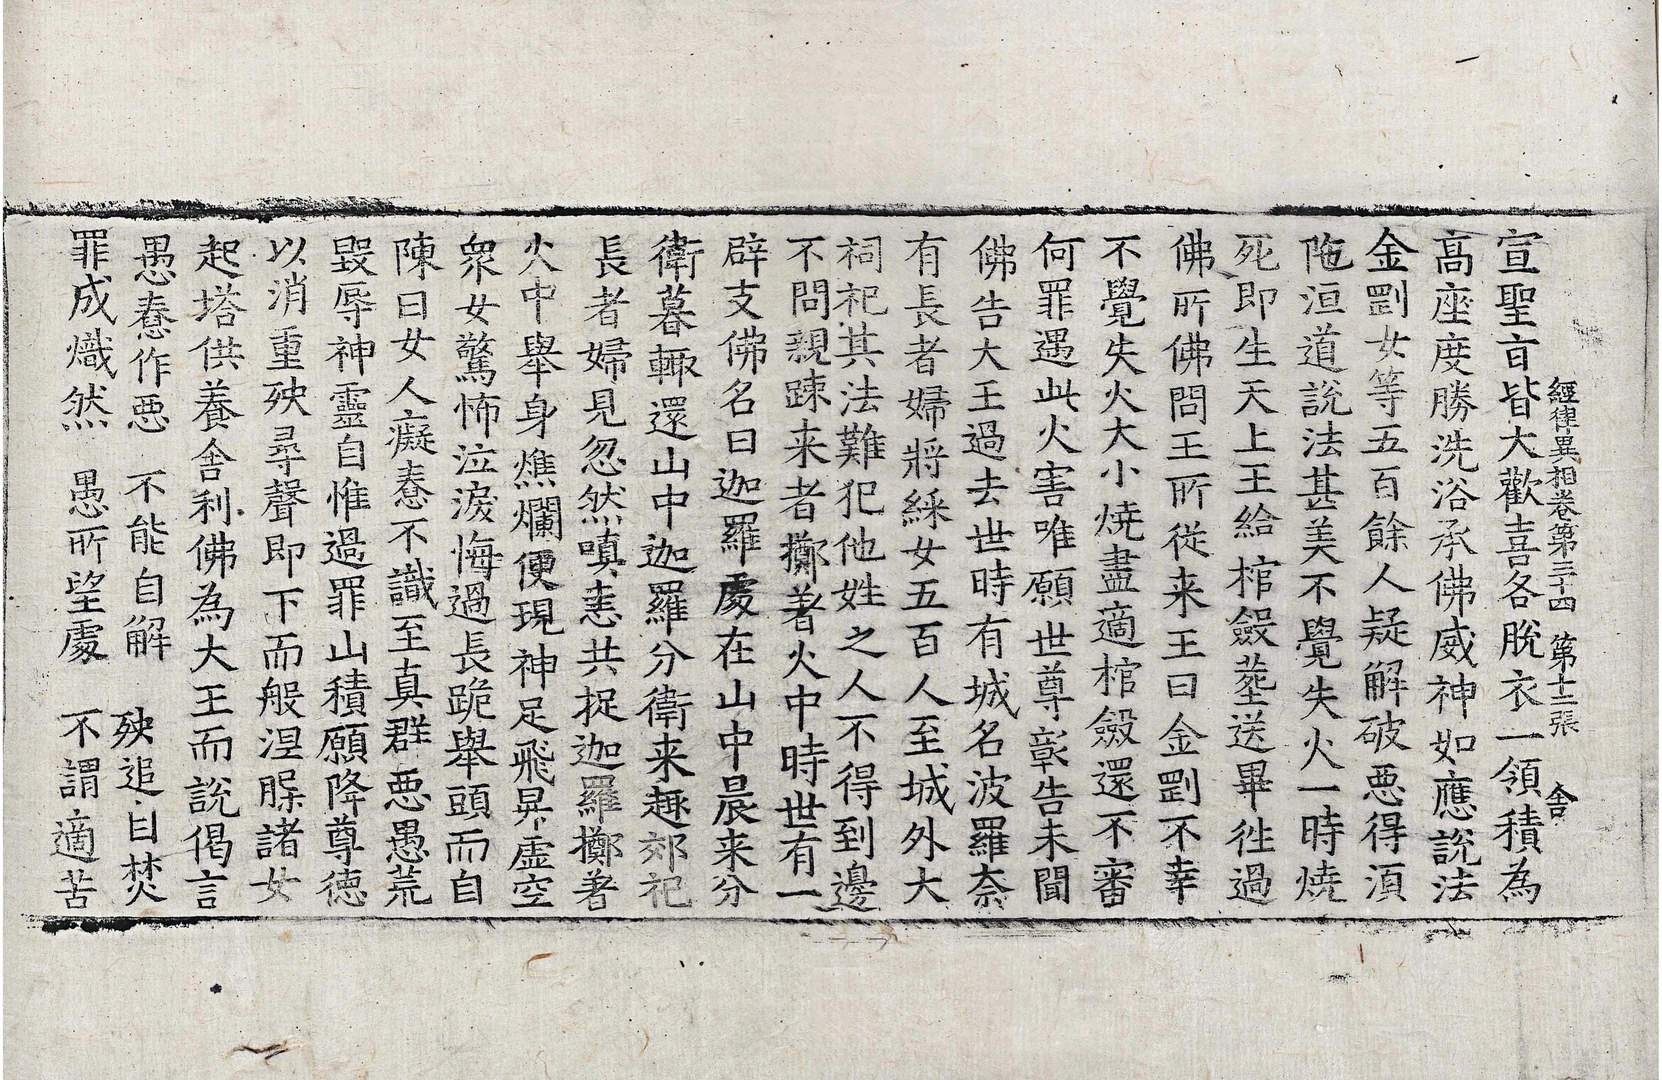 經律異相卷第三十四 第十二張 舍
宣聖旨皆大歡喜各脫衣一領積為
高座度勝洗浴承佛威神如應說法
金剛女等五百餘人疑解破惡得須
陁洹道說法甚美不覺失火一時燒
死即生天上王給棺斂葬送畢往過
佛所佛問王所從来王曰金剛不幸
不覺失火大小燒盡適棺斂還不審
何罪遇此火害唯願世尊彰告未聞
佛告大王過去世時有城名波羅奈
有長者婦將綵女五百人至城外大
祠祀其法難犯他姓之人不得到邊
不問親踈来者擲著火中時世有一
辟支佛名曰迦羅處在山中晨来分
衛暮輙還山中迦羅分衛来趣郊祀
長者婦見忽然嗔恚共捉迦羅擲著
火中舉身燋爛便現神足飛昇虛空
衆女驚怖泣淚悔過長跪舉頭而自
陳曰女人癡惷不識至真群惡愚荒
毀辱神靈自惟過罪山積願降尊德
以消重殃尋聲即下而般涅槃諸女
起塔供養舍利佛為大王而說偈言
愚惷作惡 不能自解 殃追自焚
罪成熾然 愚所望處 不謂適苦